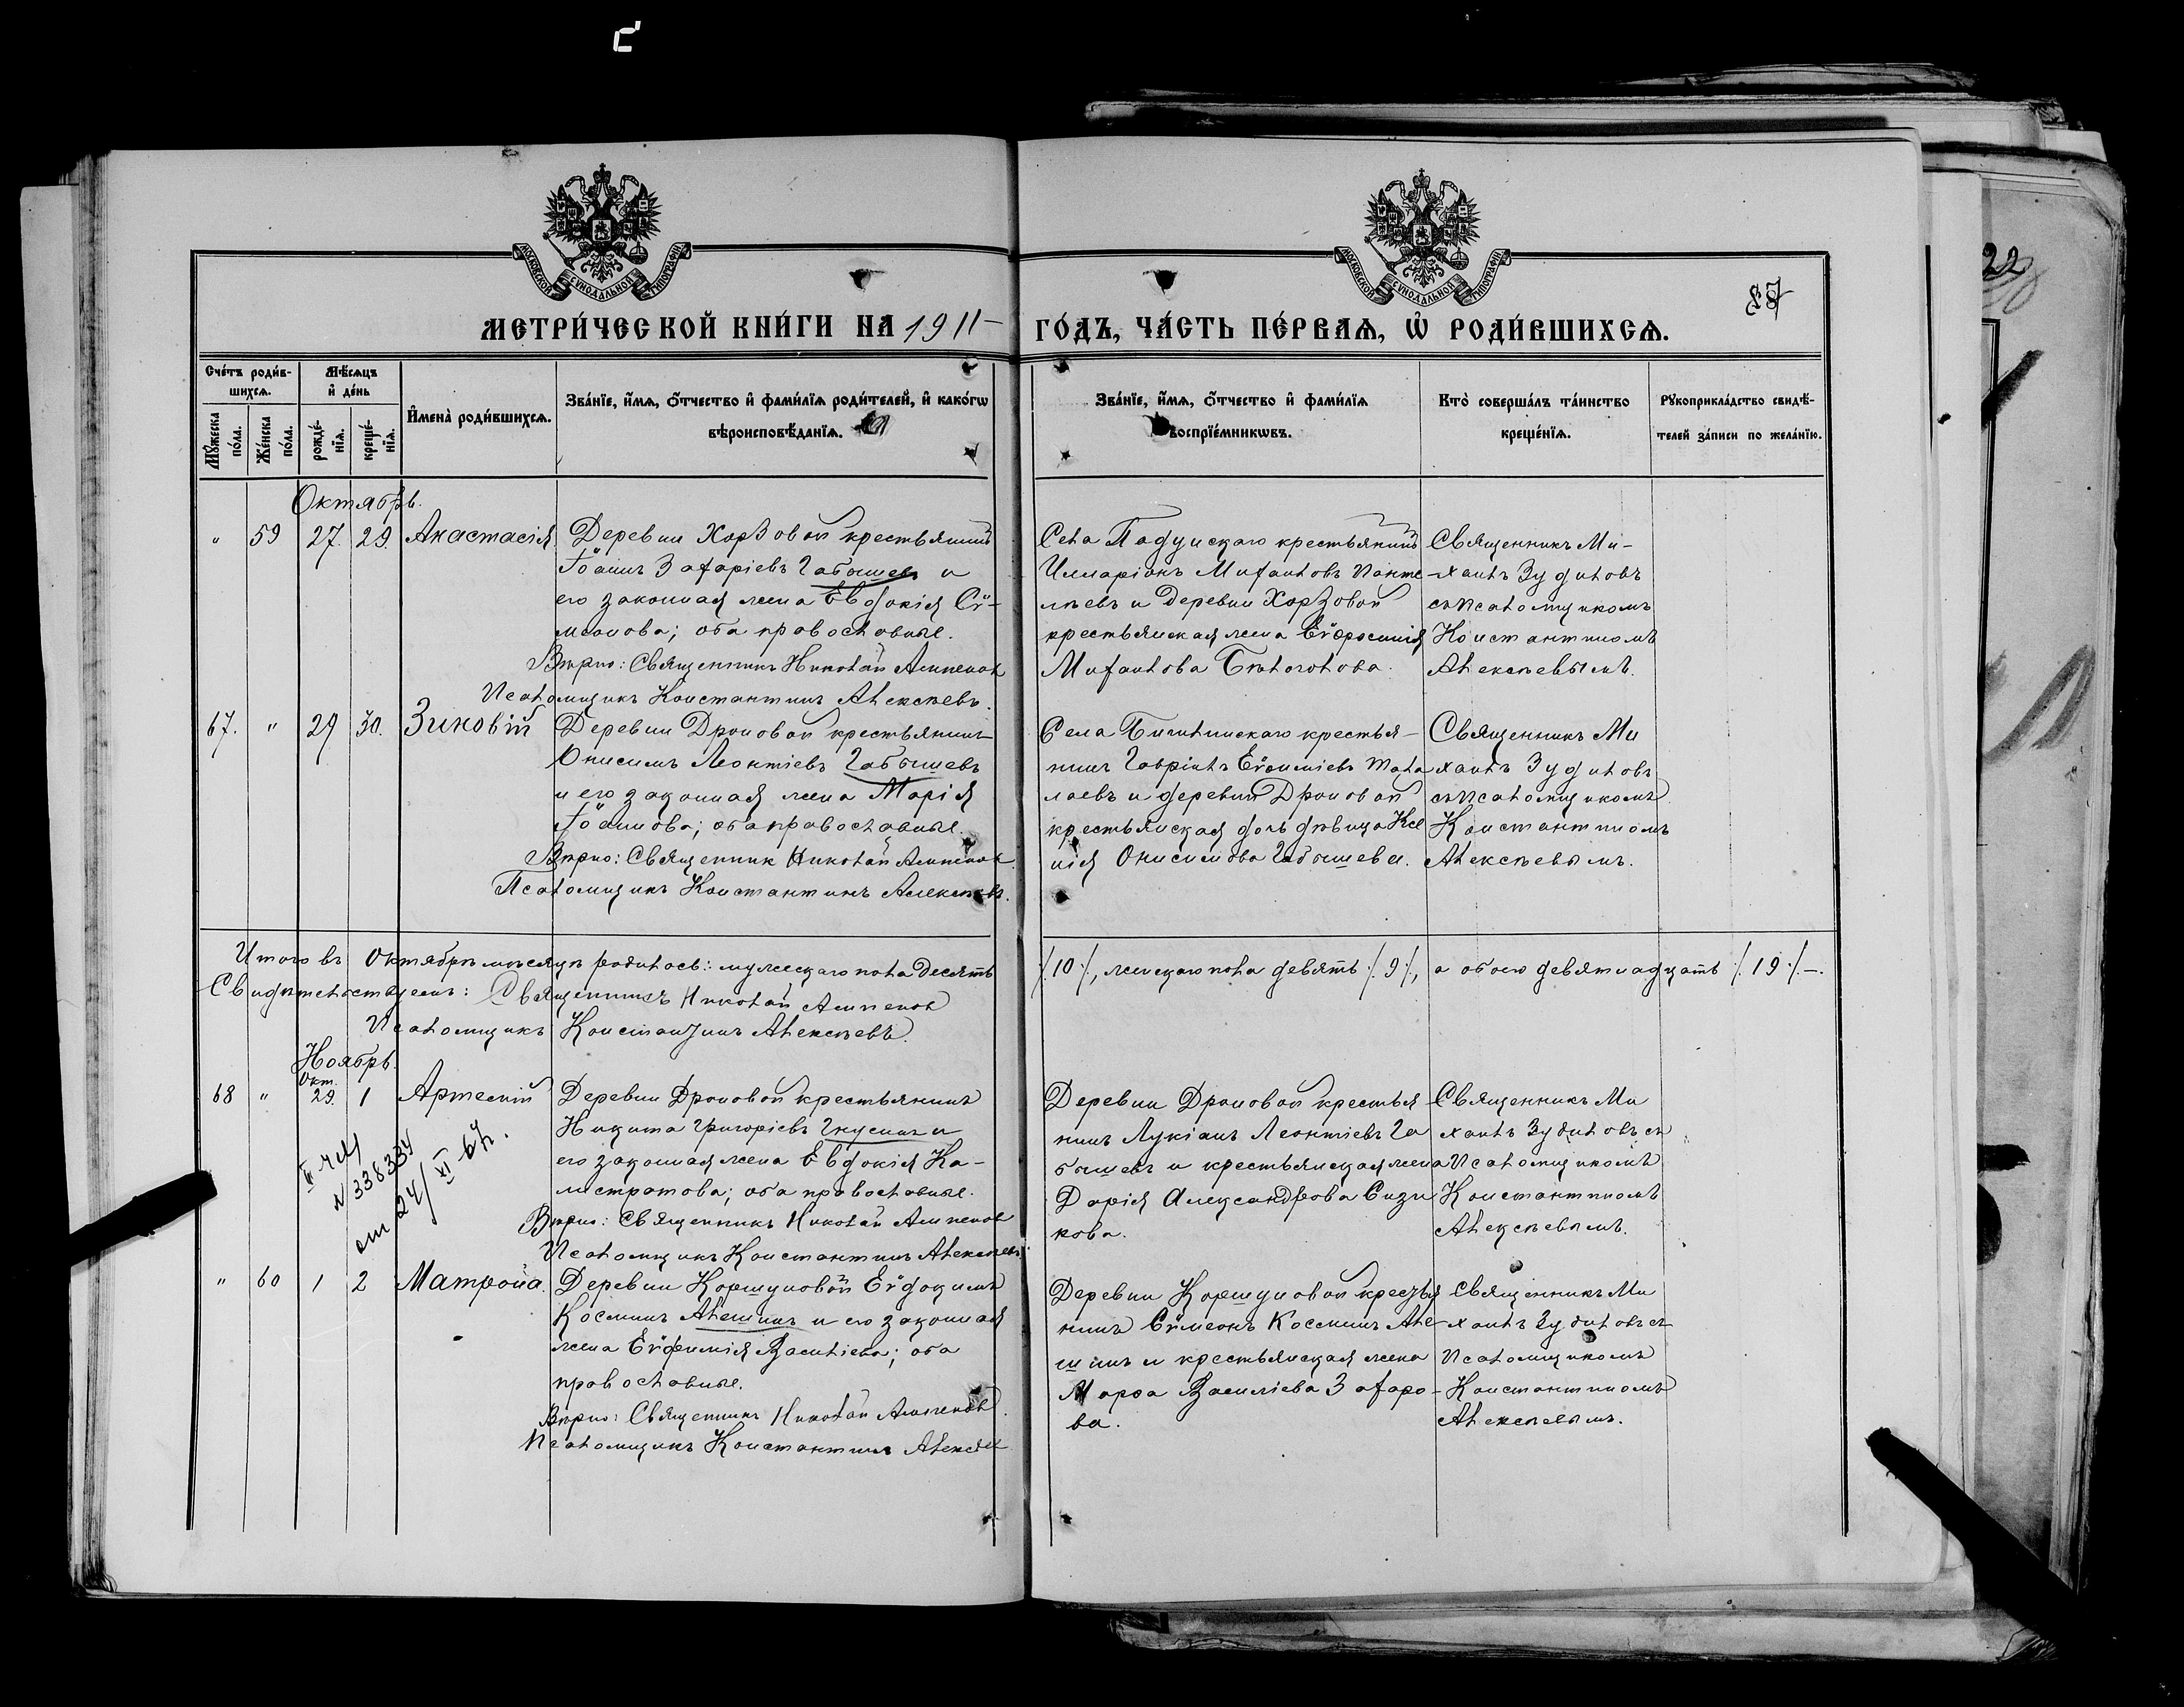 МОСКОВСКОЙ СѴНОДАЛЬНОЙ ТИПОГРАФІИ
МОСКОВСКОЙ СѴНОДАЛЬНОЙ ТИПОГРАФІИ
МЕТРИ́ЧЕСКОЙ КНИ́ГИ НА 1911 ГО́ДЪ, ЧА́СТЬ ПЕ́РВАѦ, Ѡ҆ РОДИ́ВШИХСѦ.
Сче́тъ роди́в-
шихсѧ.
Мꙋ́жеска по́ла.
Же́нска по́ла.
Мѣ́сѧцъ
и҆ де́нь
рожде́-
нїѧ.
креще́-
нїѧ.
И҆мена̀ роди́вшихсѧ.
Зва́нїе, и҆́мѧ, ѻ҆́тчество и҆ фами́лїѧ роди́телей, и҆ како́гѡ
вѣроисповѣ́данїѧ.
Зва́нїе, и҆́мѧ, ѻ҆́тчество и҆ фами́лїѧ
воспрїе́мникѡвъ.
Кто̀ соверша́лъ та́инство
креще́нїѧ.
Рꙋкоприкла́дство свидѣ́-
телей за́писи по жела́нїю.
Октябрь.
" 59 27. 29. Анастасія.
Деревни Хорзовой крестьянинъ
Іоаннъ Захаріевъ Габышевъ и
его законная жена Евдокія Сѵ-
меонова; оба православные.
Вѣрно: Священникъ Николай
Псаломщикъ Константинъ Алексѣевъ.
Села Падунскаго крестьянинъ
Илларіонъ Михаиловъ Панте-
лѣевъ и деревни Хорзовой
крестьянская жена Еѵфросинія
Михаилова
Священникъ Ми-
хаилъ Зудиловъ
съ псаломщикомъ
Константиномъ
Алексѣевымъ.
67. " 29 30. Зиновій
Деревни Дроновой крестьянинъ
Онисимъ Леонтіевъ Габышевъ
и его законная жена Марія
Іоаннова; оба православные.
Вѣрно: Священникъ Николай
Псаломщикъ Константинъ Алексѣевъ.
Села крестья-
нинъ Гавріилъ Еѵѳиміевъ
и деревни Дроновой
крестьянская дочь дѣвица Ксе
нія Онисимова Габышева.
Священникъ Ми
хаилъ Зудиловъ
съ псаломщикомъ
Константиномъ
Алексѣевымъ.
Итого въ Октябрѣ мѣсяцѣ родилось: мужескаго пола десять /10/, женскаго пола девять /9/, а обоего девятнадцать /19/.—
Свидѣтельствуемъ: Священникъ Николай
Псаломщикъ Константинъ Алексѣевъ.
Ноябрь.
Окт.
68 " 29. 1 Артемій
Деревни Дроновой крестьянинъ
Никита Григоріевъ Гнусинъ и
его законная жена Евдокія Ка-
листратова; оба православные.
Вѣрно: Священникъ Николай
Псаломщикъ Константинъ Алексѣевъ.
N 338334
от 24/VI-67г.
Деревни Дроновой крестья-
нинъ Лукіанъ Леонтіевъ Га
бышевъ и крестьянская жена
Дарія Александрова Сизи
кова.
Священникъ Ми
хаилъ Зудиловъ съ
Псаломщикомъ
Константиномъ
Алексѣевымъ.
" 60 1 2 Матрона.
Деревни Коршуновой Еѵдокимъ
Косминъ Алешинъ и его законная
жена Еѵѳимія Василіева; оба
православные.
Вѣрно: Священникъ Николай
Псаломщикъ Константинъ
Деревни Коршуновой крестья
нинъ Сѵмеонъ Косминъ Але-
шинъ и крестьянская жена
Марѳа Василіева Захаро-
ва.
Священникъ Ми
хаилъ Зудиловъ съ
Псаломщикомъ
Константиномъ
Алексѣевымъ.
22